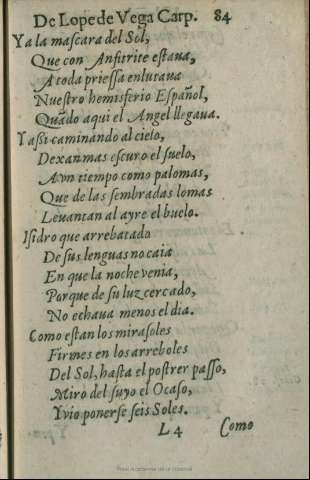 De Lope de Vega Carp. 84
Ya la mascara del Sol,
Que con Anfitrite estaua,
A toda priessa enlutaua
Nuestro hemisferio Español,
Quãdo aqui el Angel llegaua.
Y assi caminando al cielo,
Dexan mas escuro el suelo,
A vn tiempo como palomas,
Que de las sembradas lomas
Leuantan al ayre el buelo.
Isidro que arrebatado
De sus lenguas no caìa
En que la noche venia,
Porque de su luz cercado,
No echaua menos el dia.
Como estan los mirasoles
Firmes en los arreboles
Del Sol, hasta el postrer passo,
Mirò del suyo el Ocaso,
Y vio ponerse seis Soles.
L 4 Como